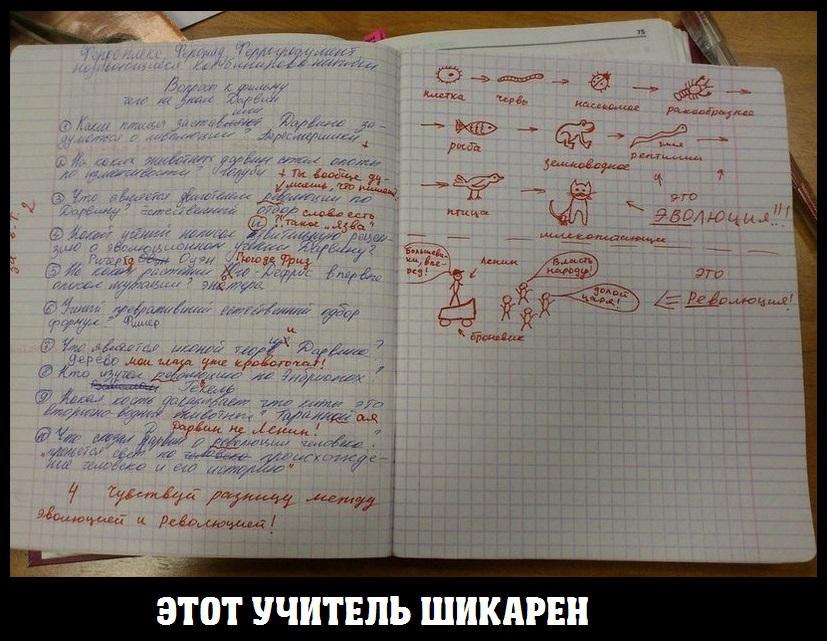 Вопросы к фильму
чего не знал Дарвин
① Какие птицы заставили Дарвина за-
думаться о эволюции? Пересмешники +
② На каких животных Дарвин ставил опыты
по изменчивости? Голуби +
Ты вообще ду-
маешь, что пишешь?
③ Что является двигателем революции по
Дарвину? естественный отбор
слово есть
такое "язва"
④ Какой учёный написал язвительную рецен-
зию о эволюционном учении Дарвина?
Ричард Оуэн
⑤ На каком растении Гюго-Дефриз впервые
описал мутации? энотера
Гюго де Фриз
⑥ Учёный превративший естественный отбор
формулу? Фишер
⑦ Что является иконой теории Дарвина?
дерево мои глаза уже кровоточат!
⑧ Кто изучал революцию по эмбрионах?
Геккель
⑨ Какая кость доказывает что киты это
вторично-водные животные? Таранная
Дарвин не Ленин!
⑩ Что сказал Дарвин о революции человека?
"прольется свет на происхожде-
ние человека и его историю"
4 Чувствуй разницу между
эволюцией и революцией!
75
клетка червь насекомое ракообразное
рыба земноводное рептилии
птица
млекопитающее
это
ЭВОЛЮЦИЯ!!!
Большеви-
ки, впе-
ред!
Ленин
Власть
народу!
долой
царя!
броневик
это
Революция!
ЭТОТ УЧИТЕЛЬ ШИКАРЕН